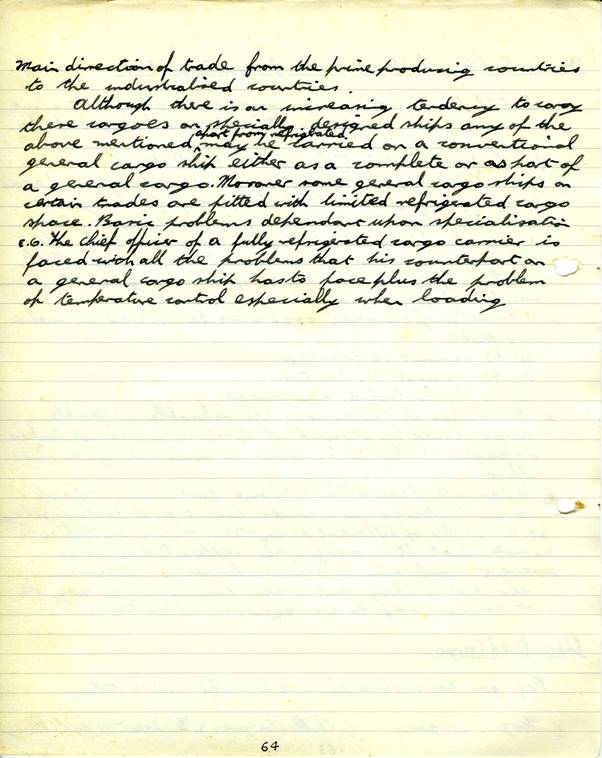 main direction of trade from the prime producing countries
to the industrialised countries.
Although there is an increasing tendency to carry
these cargoes on specially designed ships any of the
apart from refrigerated
above mentioned, may be carried on a conventional
general cargo ship either as a complete or as part of
a general cargo. Moreover some general cargo ships on
certain trades are fitted with limited refrigerated cargo
space. Basic problems dependant upon specialisation
e.G. The Chief officer of a fully refrigerated cargo carrier is
faced with all the problems that his counterpart on
a general cargo ship has to face plus the problem
of temperature control especially when loading
64